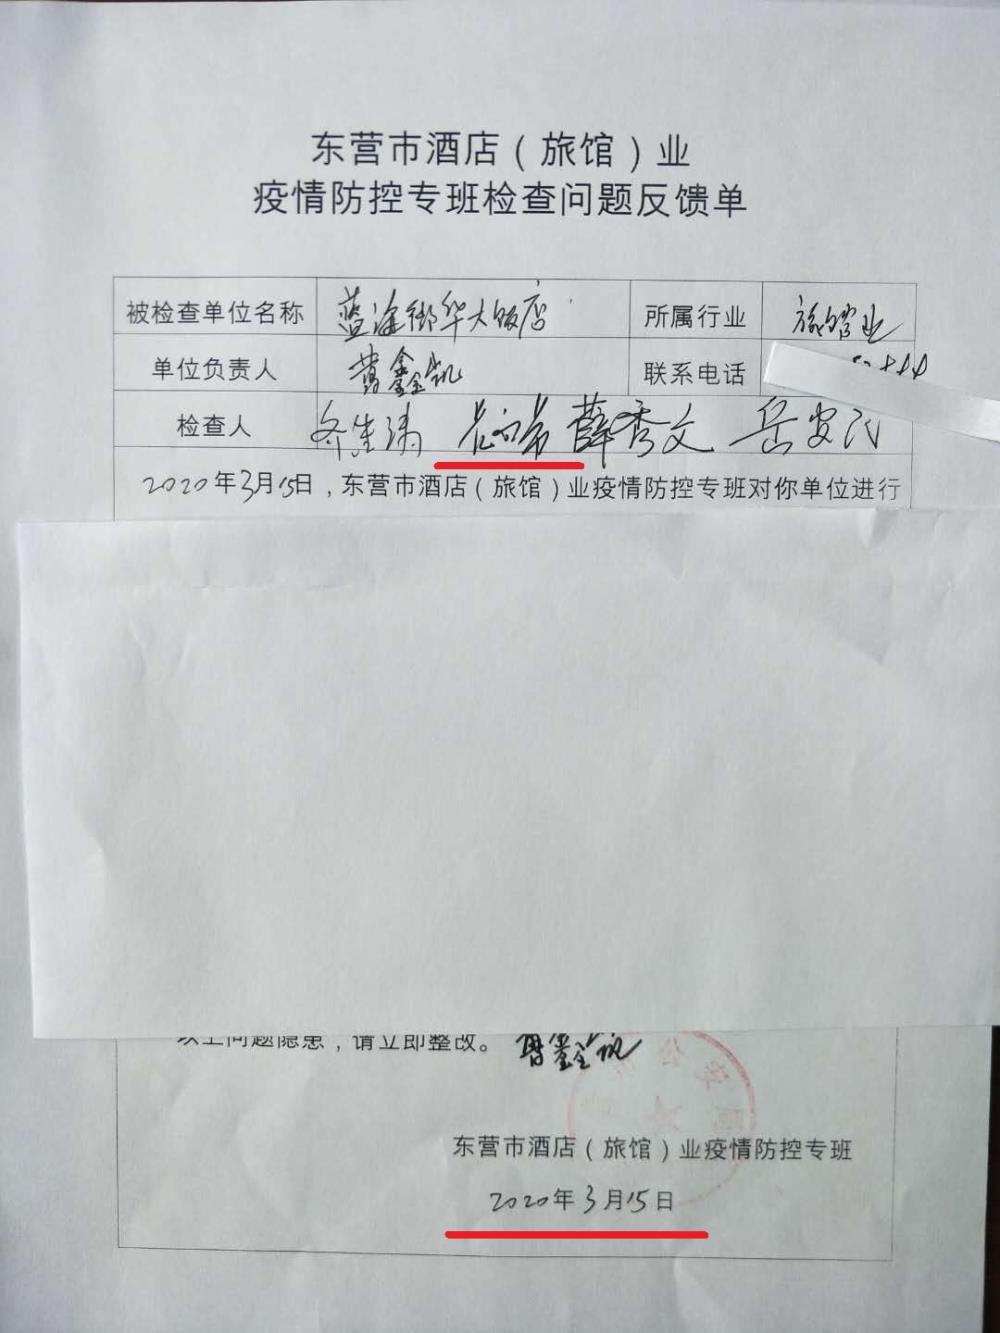 东营市酒店（旅馆）业
疫情防控专班检查问题反馈单
被检查单位名称 蓝海御华大饭店 所属行业 旅馆业
单位负责人 曹鑫凯 联系电话
检查人 薛秀文 岳安民
2020年3月15日，东营市酒店（旅馆）业疫情防控专班对你单位进行
以上问题隐患，请立即整改。 曹鑫凯
东营市酒店（旅馆）业疫情防控专班
2020年3月15日